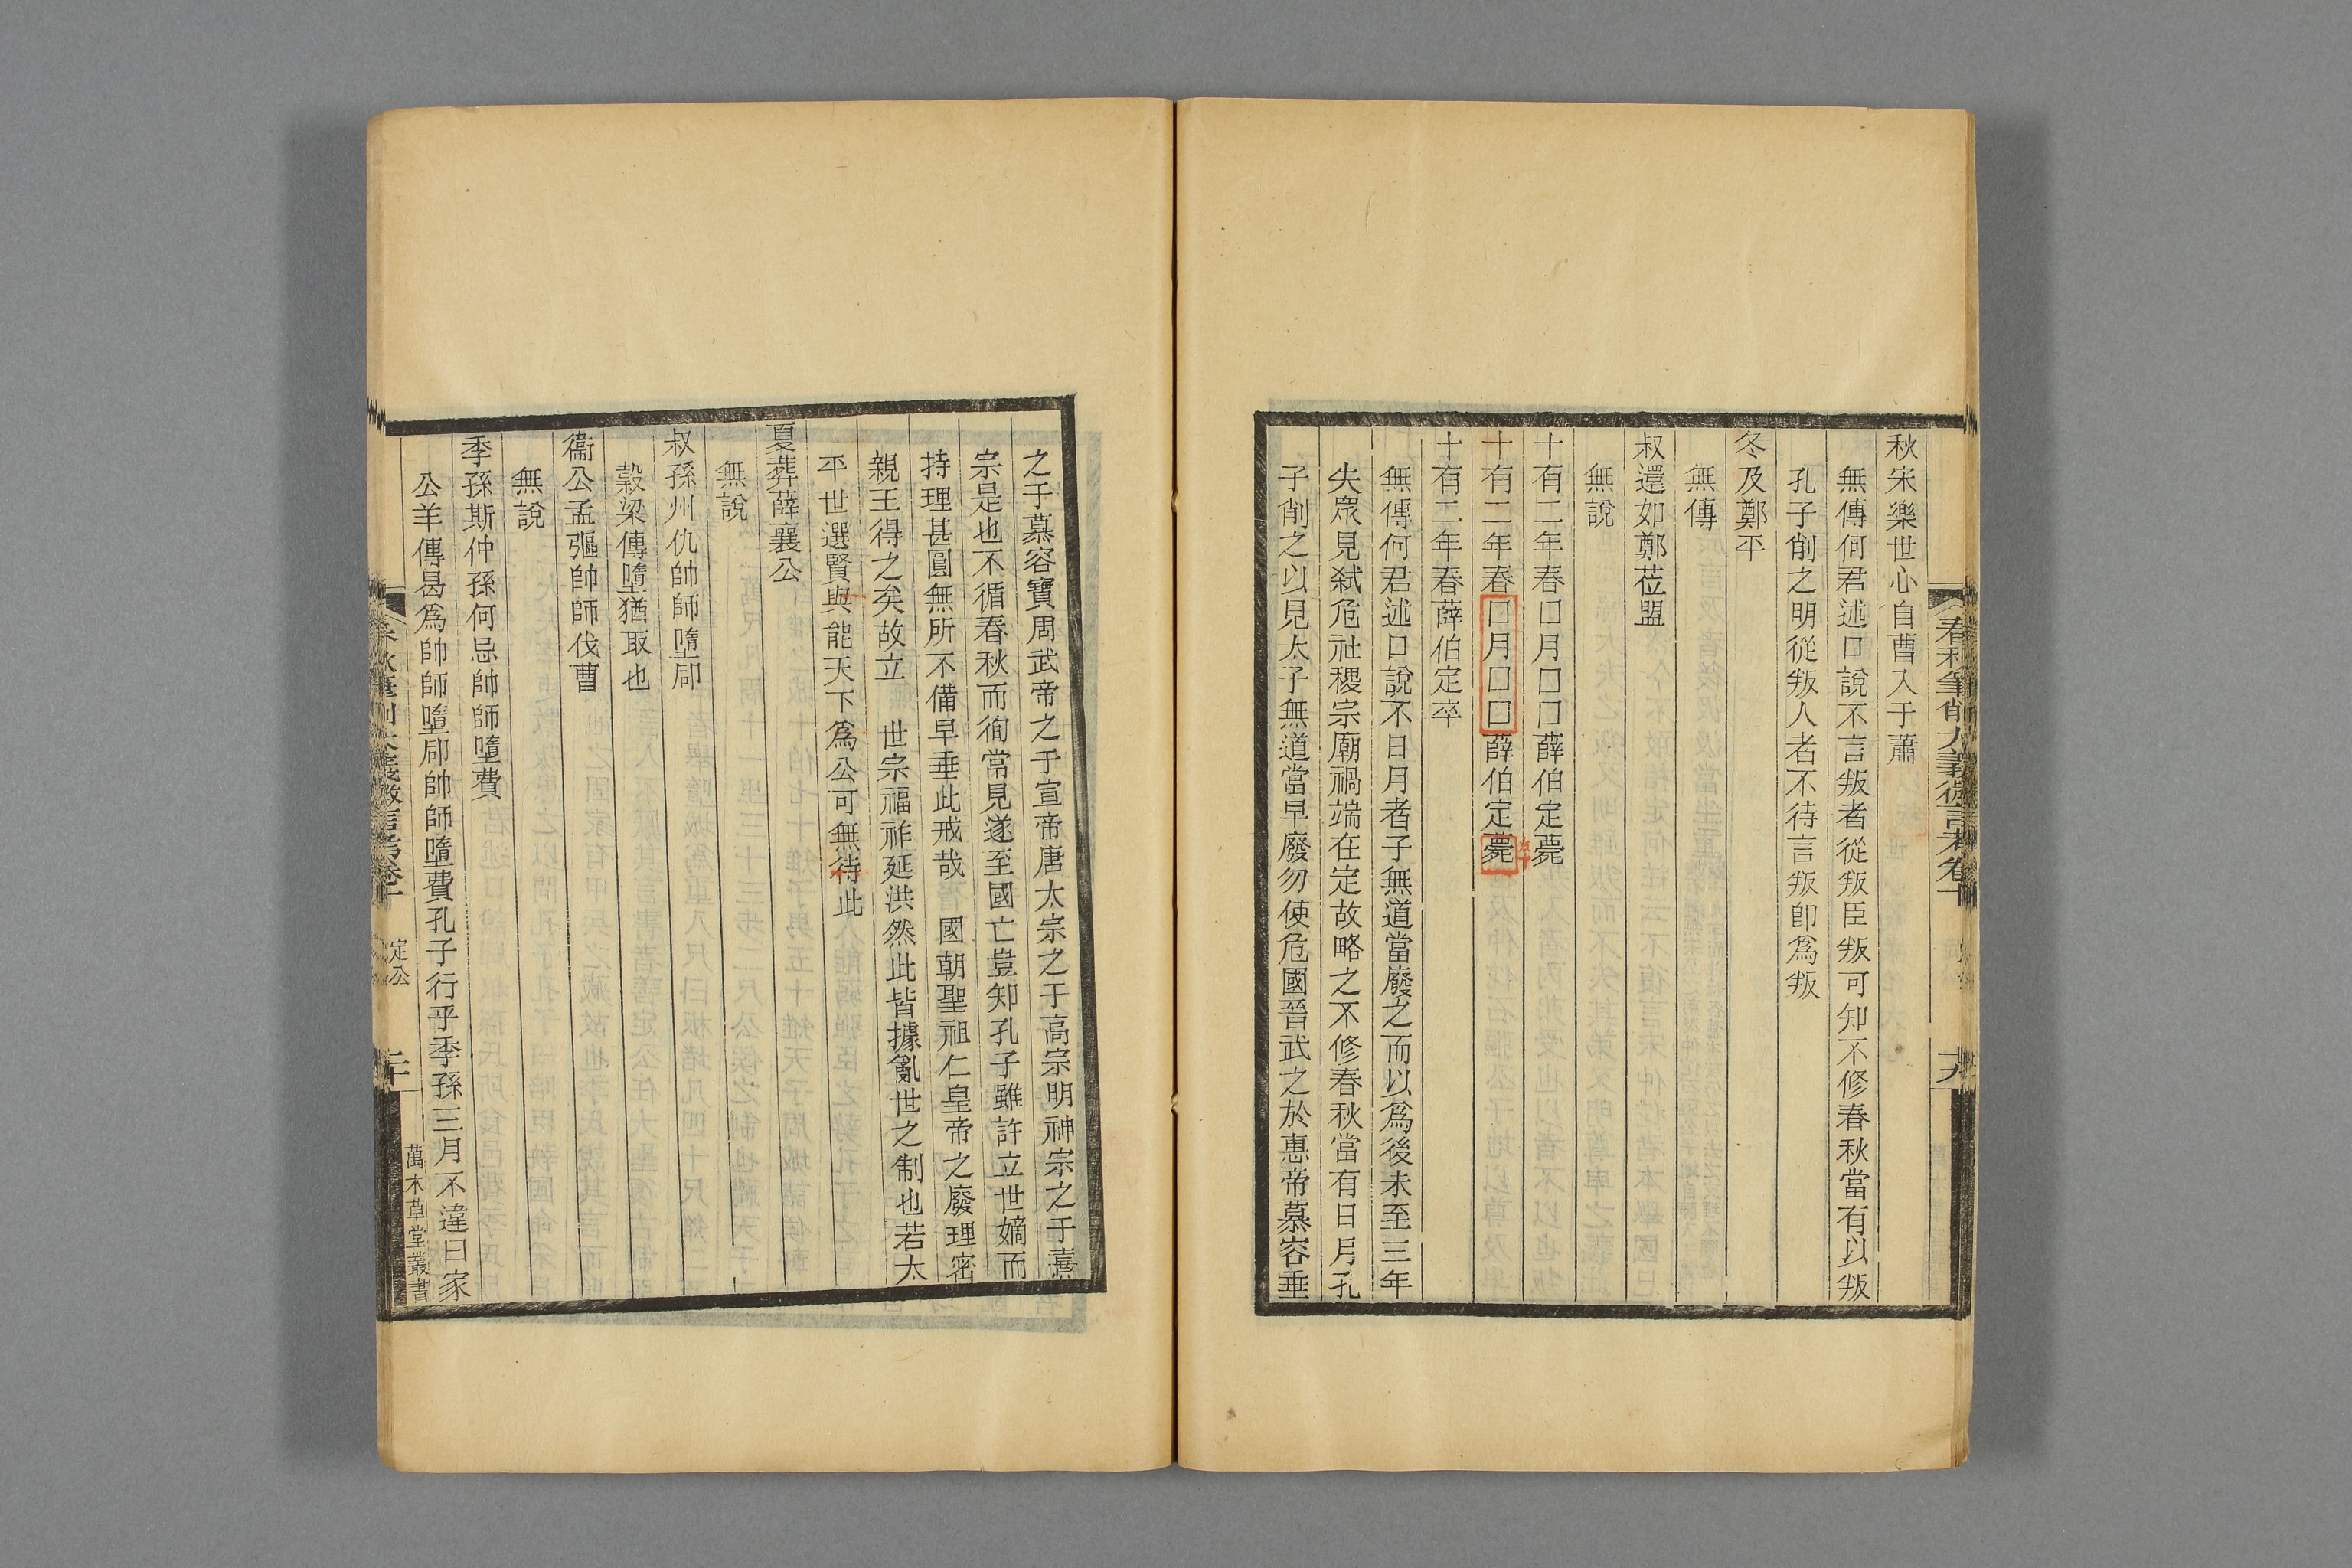 秋宋樂世心自曹入于蕭
無傳何君述口說不言叛者從叛臣叛可知不修春秋當有以叛
孔子削之明從叛人者不待言叛卽爲叛
冬及鄭平
無傳
叔還如鄭莅盟
無說
十有二年春□月□□薛伯定薨
十有二年春□月□□薛伯定薨
十有二年春薛伯定卒
無傳何君述口說不日月者子無道當廢之而以爲後未至三年
失眾見弑危社稷宗廟禍端在定故略之不修春秋當有日月孔
子削之以見太子無道當早廢勿使危國晉武之於惠帝慕容垂
之于慕容寶周武帝之于宣帝唐太宗之于高宗明神宗之于熹
宗是也不循春秋而徇常見遂至國亡豈知孔子雖許立世嫡而
持理甚圓無所不備早垂此戒哉 國朝聖祖仁皇帝之廢理密
親王得之矣故立 世宗福祚延洪然此皆據亂世之制也若太
平世選賢與能天下爲公可無待此
夏葬薛襄公
無說
叔孫州仇帥師墮郈
穀梁傳墮猶取也
衞公孟彄帥師伐曹
無說
季孫斯仲孫何忌帥師墮費
公羊傳曷爲帥師墮郈帥師墮費孔子行乎季孫三月不違曰家
春秋筆削大義微言考卷十
定公
二十
萬木草堂叢書